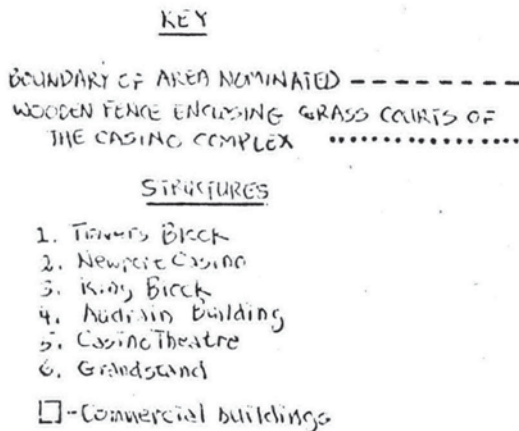 KEY
BOUNDARY OF AREA NOMINATED
WOODEN FENCE ENCLOSING GRASS COURTS OF
THE CASINO COMPLEX
STRUCTURES
1. Travers Block
2. Newport Casino
3. King Block
4. Audrain Building
5. Casino Theatre
6. Grandstand
□-Commercial buildings